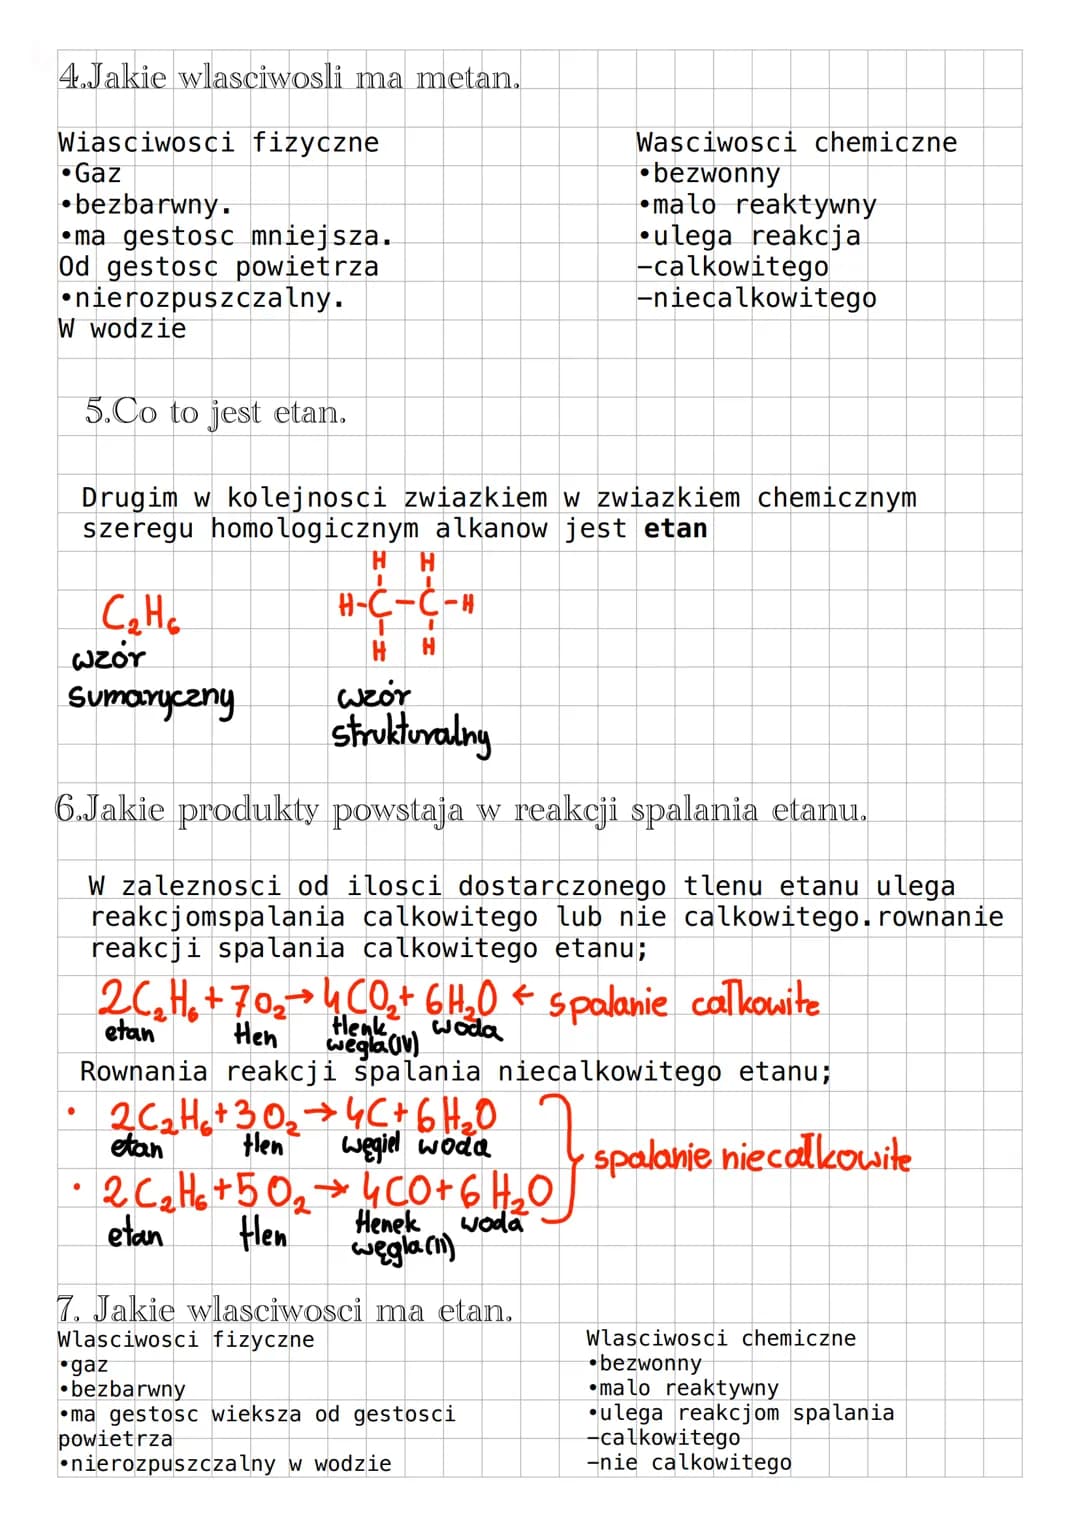 4.Jakie wlasciwosli ma metan.
Wiasciwosci fizyczne
•Gaz
•bezbarwny.
•ma gestosc mniejsza.
Od gestosc powietrza
•nierozpuszczalny.
W wodzie
Wasciwosci chemiczne
•bezwonny
•malo reaktywny
•ulega reakcja
-calkowitego
-niecalkowitego
5.Co to jest etan.
Drugim w kolejnosci zwiazkiem w zwiazkiem chemicznym
szeregu homologicznym alkanow jest etan
C₂H₆
wzór
sumaryczny
H H
H-C-C-H
H H
wzór
strukturalny
6.Jakie produkty powstaja w reakcji spalania etanu.
W zaleznosci od ilosci dostarczonego tlenu etanu ulega
reakcjomspalania calkowitego lub nie calkowitego.rownanie
reakcji spalania calkowitego etanu;
2C₂H₆+7O₂→4CO₂+6H₂O ← spalanie całkowite
etan tlen tlenk woda
węgla(IV)
Rownania reakcji spalania niecalkowitego etanu;
• 2C₂H₆+3O₂→4C+6H₂O
etan tlen węgiel woda
spalanie niecałkowite
• 2C₂H₆+5O₂→4CO+6H₂O
etan tlen tlenek woda
węgla(II)
7. Jakie wlasciwosci ma etan.
Wlasciwosci fizyczne
•gaz
•bezbarwny
•ma gestosc wieksza od gestosci
powietrza
•nierozpuszczalny w wodzie
Wlasciwosci chemiczne
•bezwonny
•malo reaktywny
•ulega reakcjom spalania
-calkowitego
-nie calkowitego